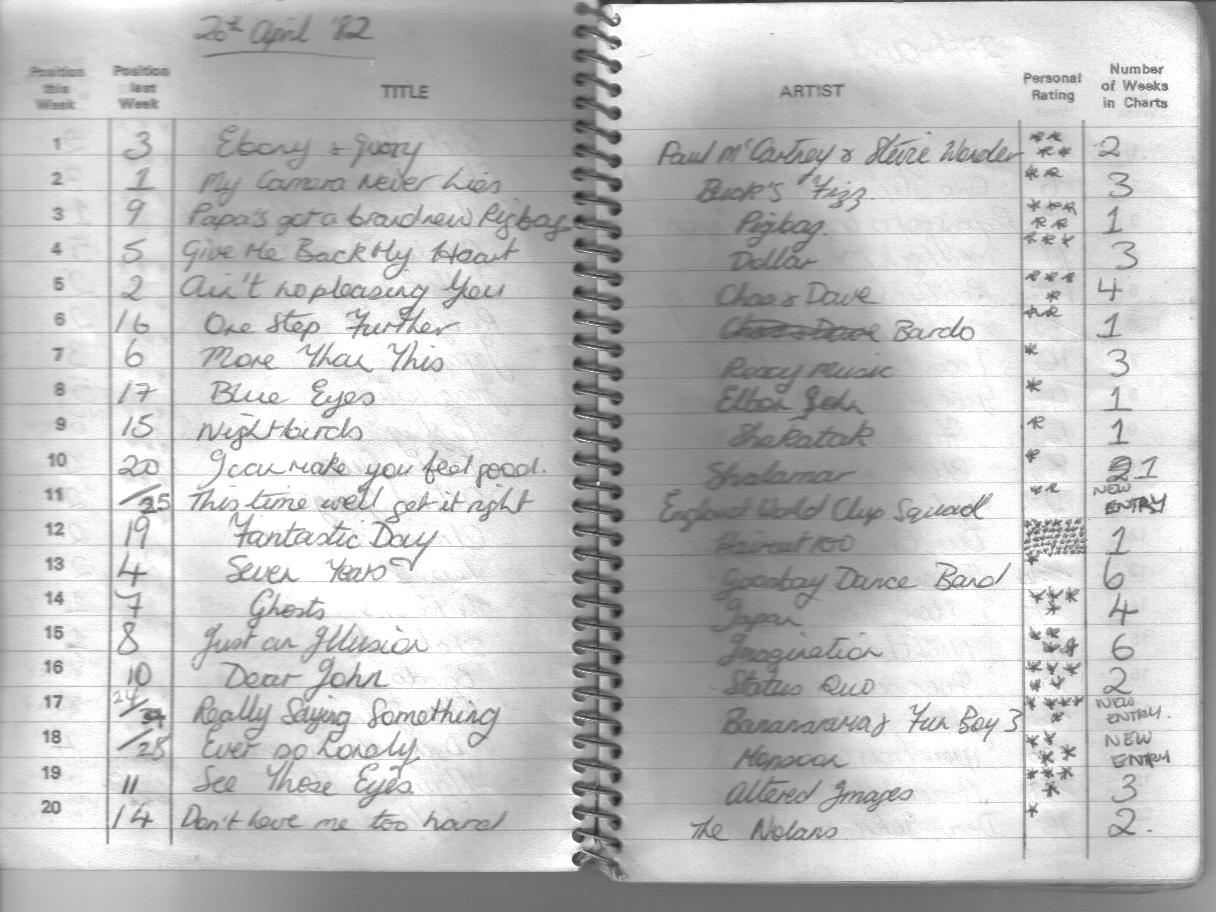 20th April '82
Position this Week Position last Week TITLE ARTIST Personal Rating Number of Weeks in Charts
1 3 Ebony & Ivory Paul McCartney & Stevie Wonder ** ** 2
2 1 My Camera Never Lies Buck's Fizz. ** 3
3 9 Papa's got a brand new Pigbag Pigbag. *** ** 1
4 5 Give Me Back My Heart Dollar *** 3
5 2 Ain't no pleasing You Chas & Dave *** * 4
6 16 One Step Further Chas & Dave Bardo ** 1
7 6 More Than This Roxy Music * 3
8 17 Blue Eyes Elton John * 1
9 15 Nightbirds Shakatak * 1
10 20 I can make you feel good. Shalamar * 1
11 /25 This time we'll get it right England World Cup Squad ** NEW ENTRY
12 19 Fantastic Day Haircut 100 1
13 4 Seven Years Goombay Dance Band * 6
14 7 Ghosts Japan *** * 4
15 8 Just an Illusion Imagination ** ** 6
16 10 Dear John Status Quo *** ** 2
17 24/ Really Saying Something Bananarama & Fun Boy 3 **** * NEW ENTRY.
18 /28 Ever so Lonely Monsoon ** ** NEW ENTRY
19 11 See Those Eyes Altered Images *** * 3
20 14 Don't love me too hard The Nolans * 2.